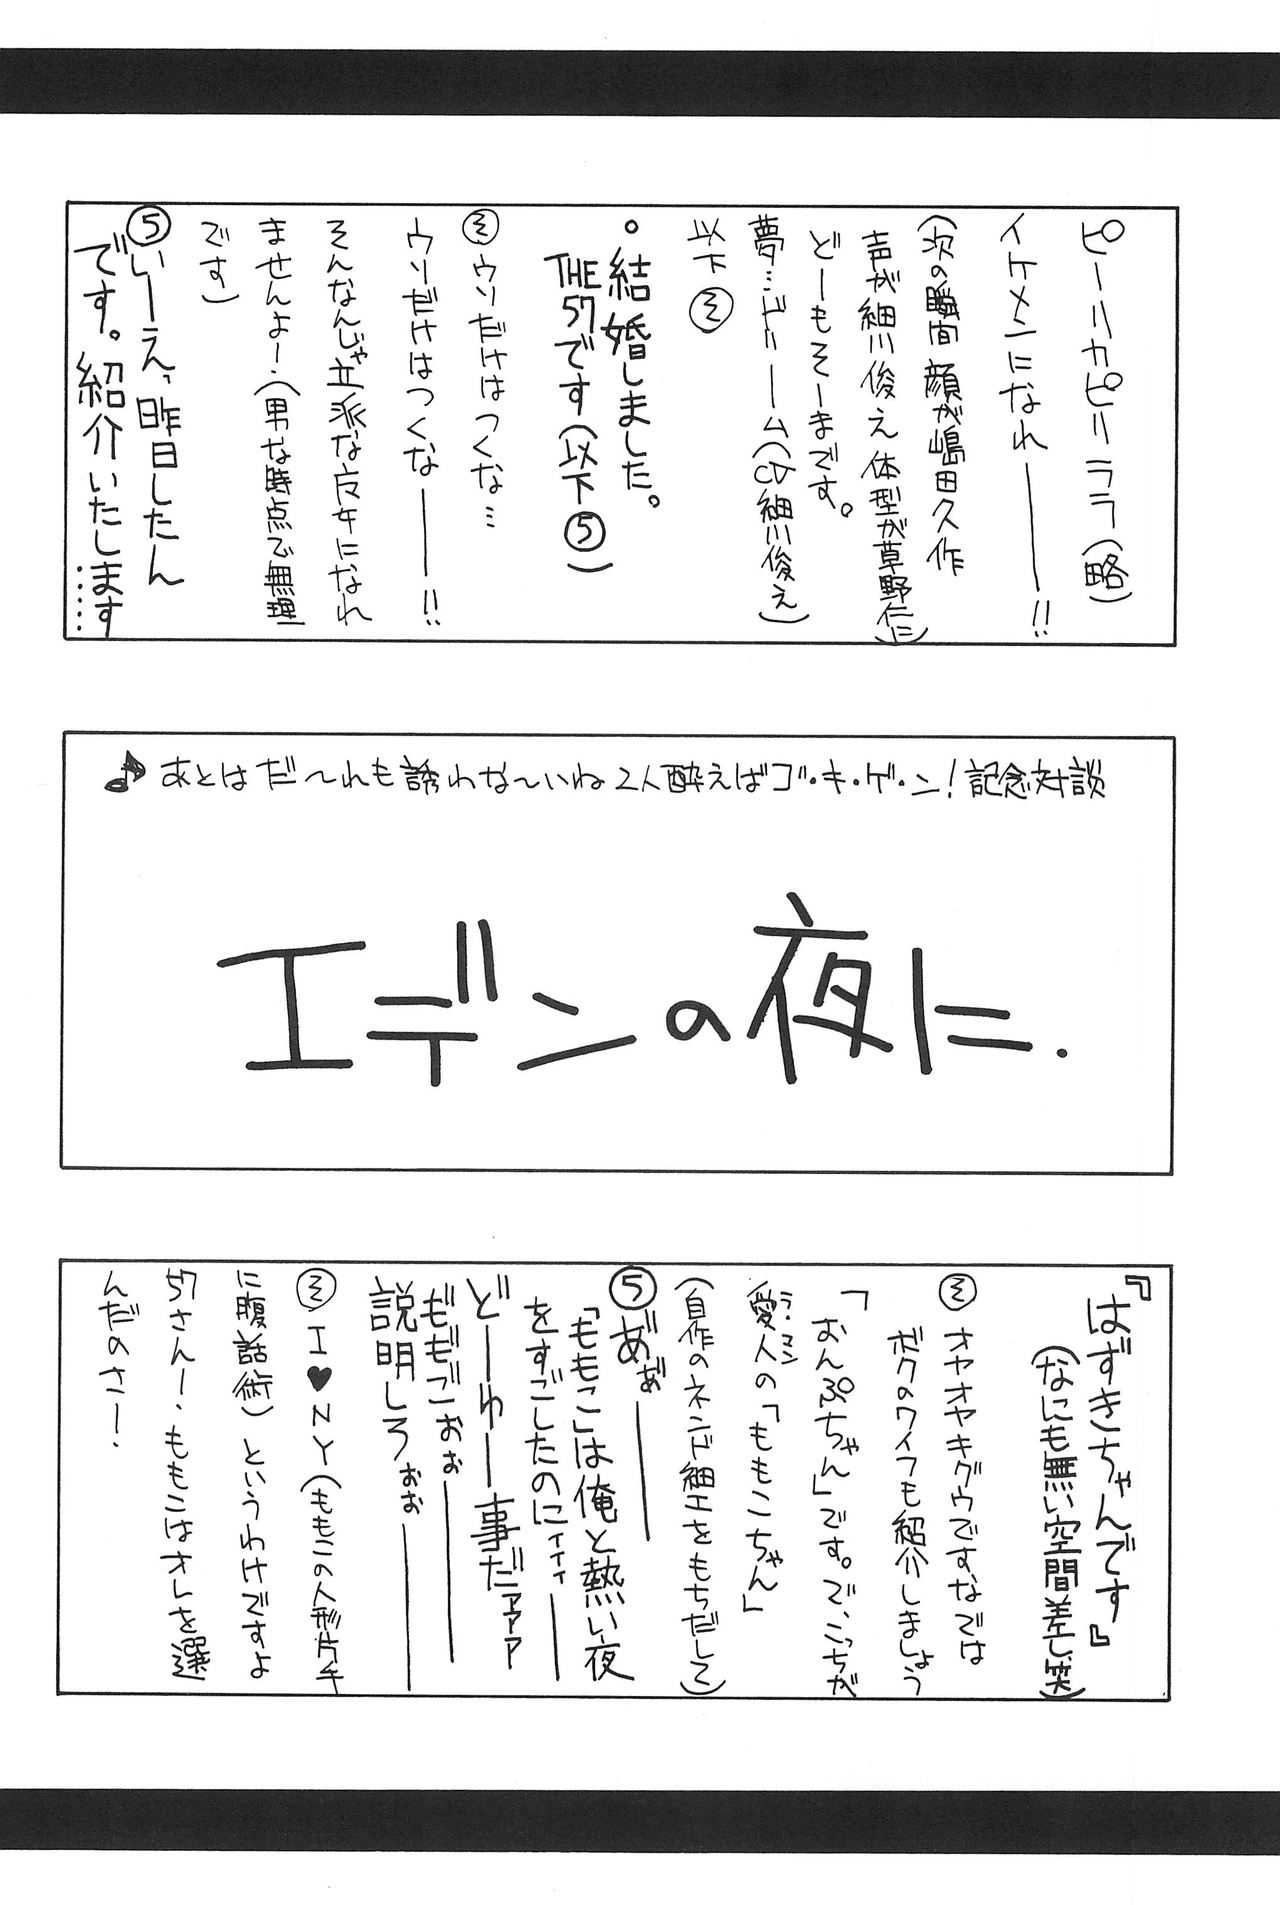 ピーリカピリララ（略）
イケメンになれ――――!!
（次の瞬間 顔が嶋田久作
声が細川俊え 体型が草野仁に）
どーもそーまです。
夢…ドリーーム（CV細川俊え）
以下 そ
。結婚しました。
THE57です（以下⑤）
そ ウソだけはつくな…
ウソだけはつくな――――!!
そんなんじゃ立派な庄女になれ
ませんよー・（男な時点で無理
です）
⑤いーえっ昨日したん
です。紹介いたします……
♪あとはだ〜れも誘わな〜いね2人酔えばゴ・キ・ゲ・ン！記念対談
エデンの夜に.
『はずきちゃんです』
（なにも無い空間差し・笑）
そ オヤオヤキグウですな では
ボクのワイフも紹介しましょう
「おんぷちゃん」です。で、こっちが
愛人の「ももこちゃん」
ラ・マン
（自作のネンド細工をもちだして）
⑤あ゛ぁ゛――――
「ももこ」は俺と熱い夜
をすごしたのにィィィ――――
どーゆー事だァァァ――――
ももごぉぉ――――
説明しろぉぉ――――
そ I♥NY（ももこの人形片手
に腹話術）というわけですよ
57さんー、ももこはオレを選
んだのさー・